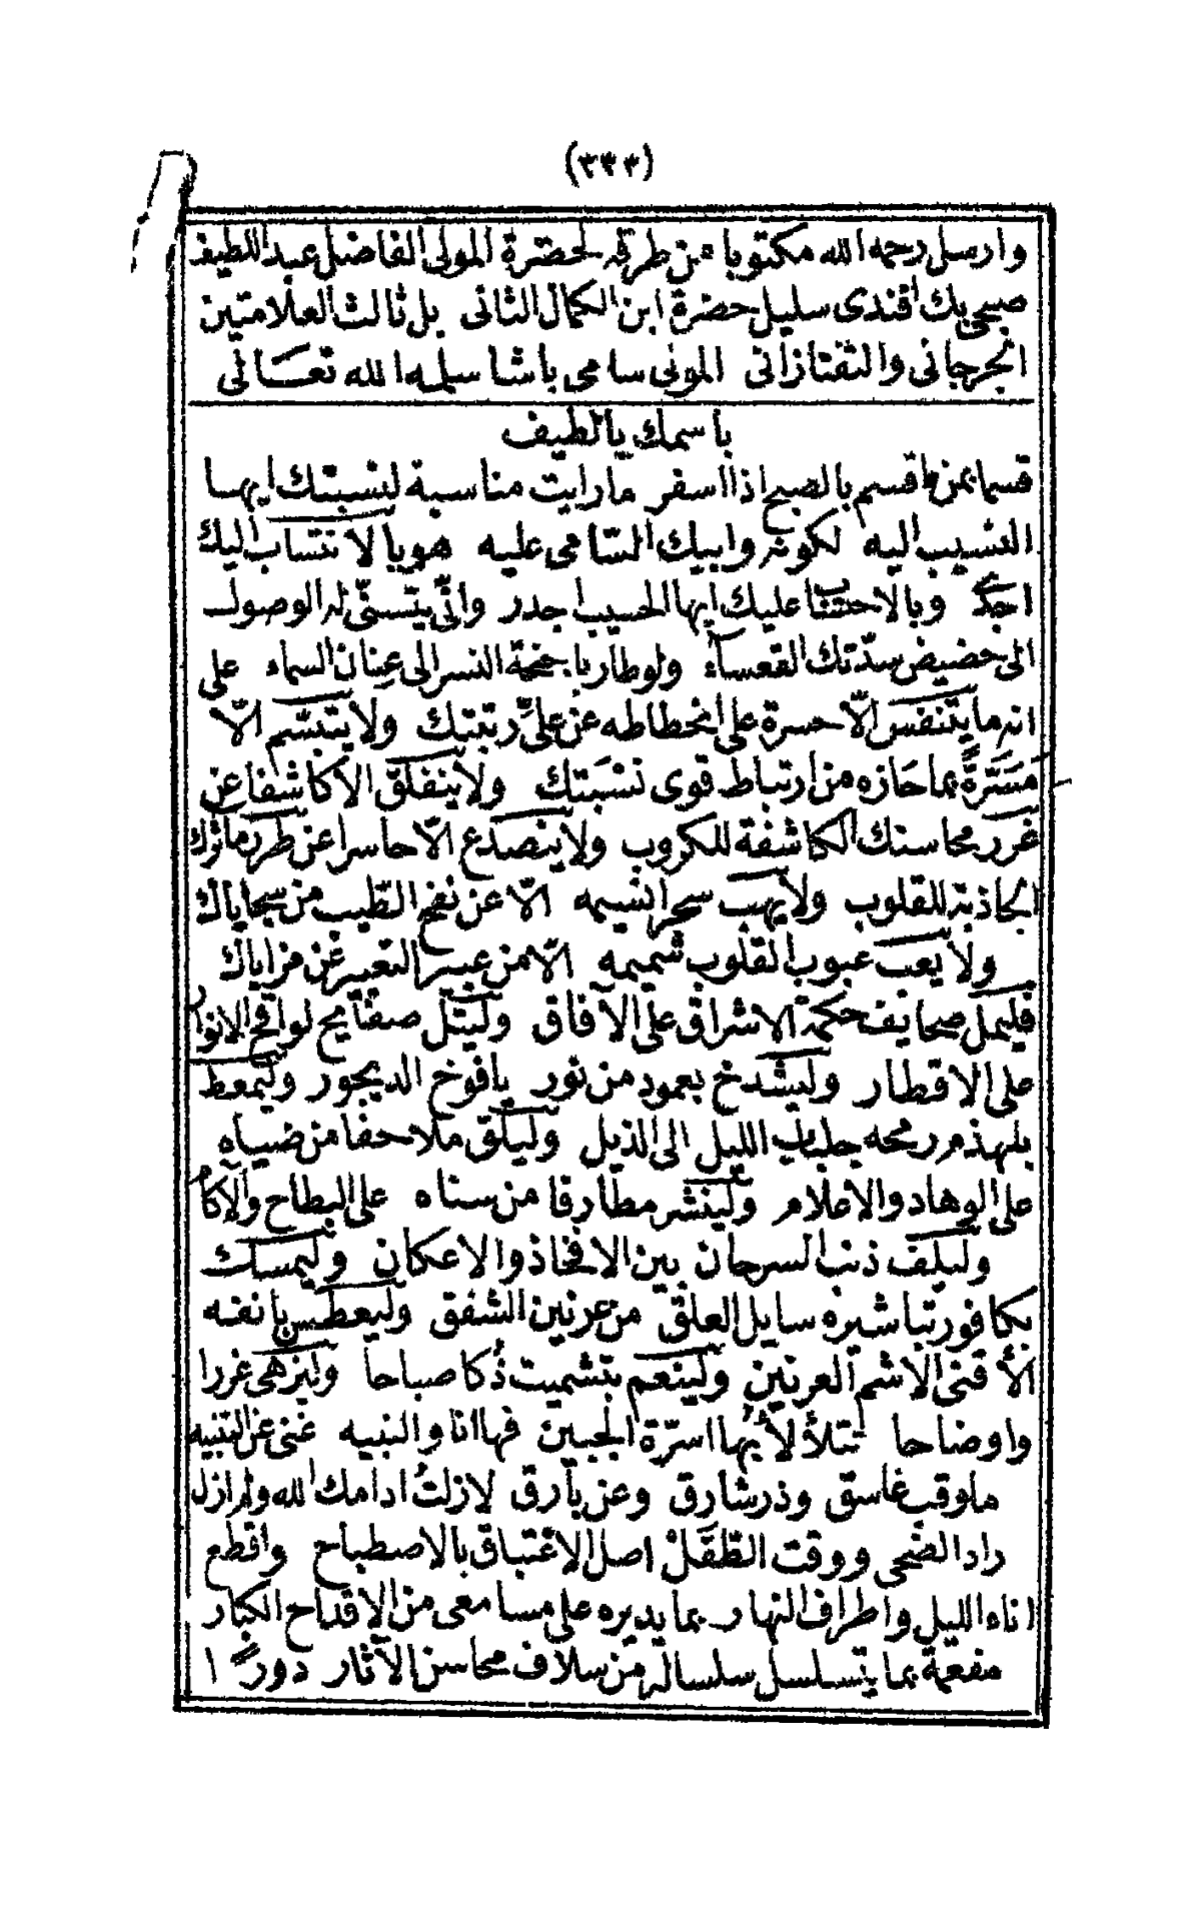 (٣٣٣)
وارسل رحمه الله مكتوبا من طرفه لحضرة المولى الفاضل عبد اللطيف
صبحى بك افندى سليل حضرة ابن الكمال الثانى بل ثالث العلامتين
الجرجانى والتفتازانى المولى سامى باشا سلمه الله تعالى
باسمك يا لطيف
قسما بمن اقسم بالصبح اذا اسفر ما رايت مناسبة لنسبتك ايها
النسيب اليه لكونه وابيك السامى عليه هو بالانتساب اليك
اجد وبالاحتفا عليك ايها الحسيب اجدر وانى يتسنى له الوصول
الى حضيض سدّتك القعساء ولو طار باجنحة النسر الى عنان السماء على
انه ما يتنفس الّا حسرة على انحطاطه عن علىّ رتبتك ولا يتبسّم الّا
مسرّة بما حازه من ارتباط قوى نسبتك ولا ينفلق الا كاشفا عن
غرر محاسنك الكاشفة للكروب ولا ينصدع الّا حاسرا عن طرر مآثرك
الجاذبة للقلوب ولا يهب سحرا نسيمه الّا عن نفح الطّيب من سجاياك
ولا يعب عبوب القلوب شميمه الّا من عبير التعبير عن مزاياك
فليمل صحايف حكمة الاشراق على الآفاق وليتل صفايح لوايح الانوار
على الاقطار وليشدخ بعمود من نور يافوخ الديجور وليمعط
بلهذم رمحه جلباب الليل الى الذيل وليلق ملاحفا من ضياه
على الوهاد والاعلام ولينشر مطارقا من سناه على البطاح والآكام
وليلف ذنب السرحان بين الافخاذ والاعكان وليمسك
بكافور تباشيره سايل العلق من عرنين الشفق وليعطس بانفه
الأقنى الاشم العرنين ولينعم بتشميت ذكا صباحا وليزهى غررا
واوضاحا تتلألأ بها اسرّة الجبين فها انا والنبيه غنى عن التنبيه
ما وقب غاسق وذر شارق وعن بارق لازلت ادامك الله ولم ازل
راد الضحى ووقت الطّفل اصل الاغتباق بالاصطباح واقطع
اناء الليل واطراف النهار بما يديره على مسامعى من الاقداح الكبار
مفعمة بما يتسلسل سلساله من سلاف محاسن الآثار دورًا